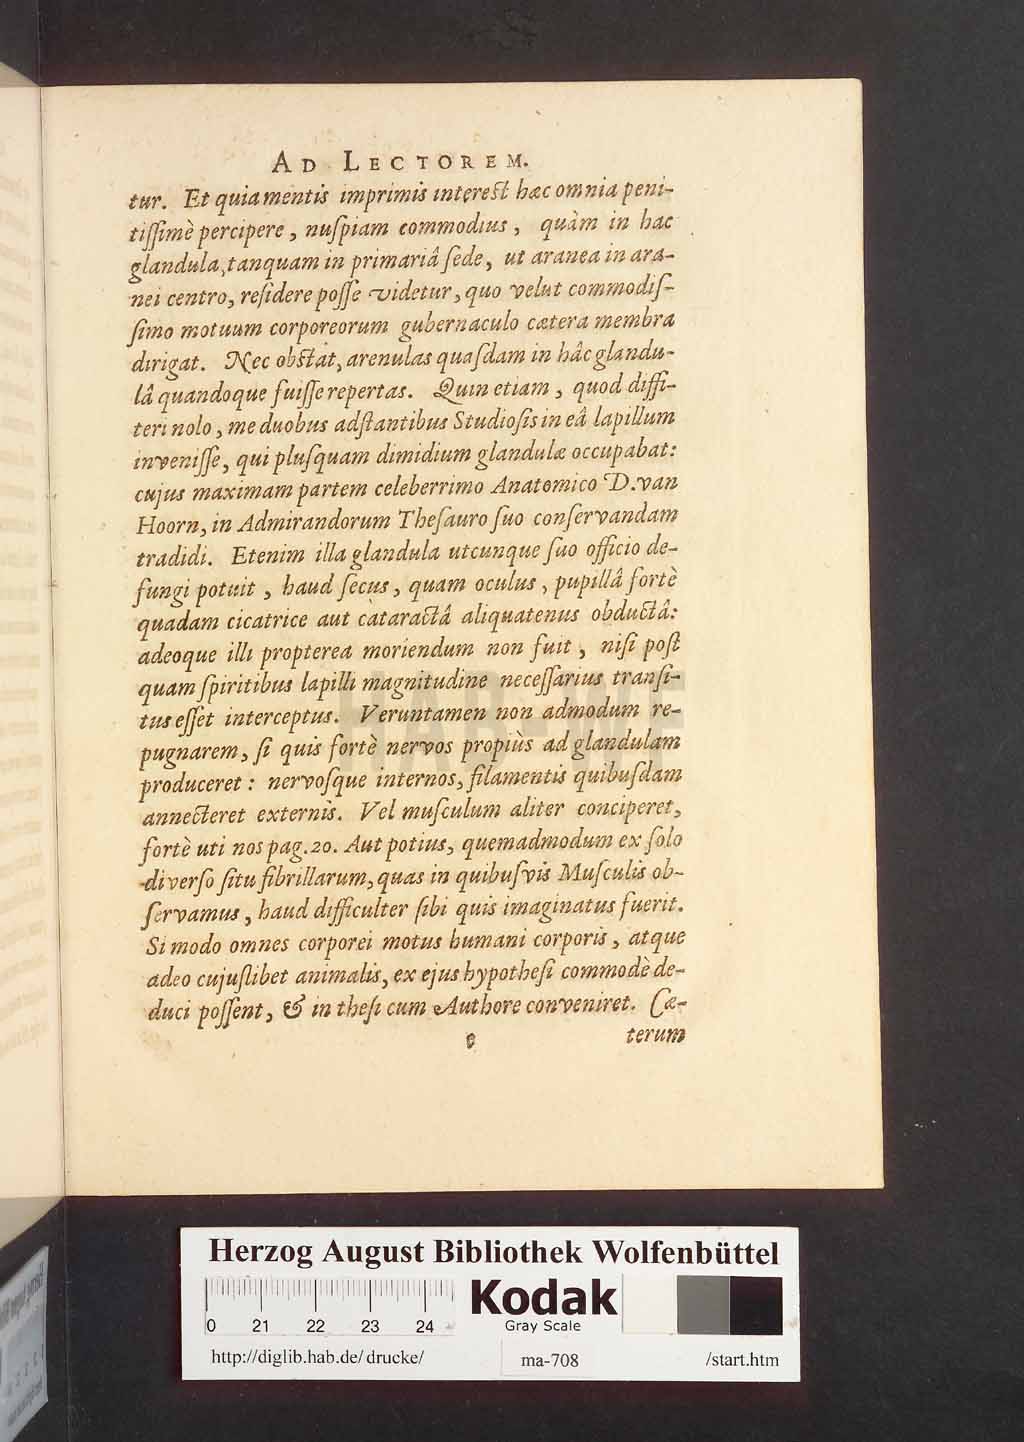 AD LECTOREM.
tur. Et quia mentis imprimis interest hæc omnia peni-
tiſſimè percipere, nuſpiam commodius, quàm in hac
glandula, tanquam in primariâ ſede, ut aranea in ara-
nei centro, reſidere poſſe videtur, quo velut commodiſ-
ſimo motuum corporeorum gubernaculo cætera membra
dirigat. Nec obſtat, arenulas quaſdam in hâc glandu-
lâ quandoque fuiſſe repertas. Quin etiam, quod diffi-
teri nolo, me duobus adſtantibus Studioſis in eâ lapillum
inveniſſe, qui pluſquam dimidium glandulæ occupabat:
cujus maximam partem celeberrimo Anatomico D. van
Hoorn, in Admirandorum Theſauro ſuo conſervandam
tradidi. Etenim illa glandula utcunque ſuo officio de-
fungi potuit, haud ſecus, quam oculus, pupillâ fortè
quadam cicatrice aut cataractâ aliquatenus obductâ:
adeoque illi propterea moriendum non fuit, niſi poſt
quam ſpiritibus lapilli magnitudine neceſſarius tranſi-
tus eſſet interceptus. Veruntamen non admodum re-
pugnarem, ſi quis fortè nervos propiùs ad glandulam
produceret: nervoſque internos, filamentis quibuſdam
annecteret externis. Vel muſculum aliter conciperet,
fortè uti nos pag. 20. Aut potius, quemadmodum ex ſolo
diverſo ſitu fibrillarum, quas in quibuſvis Muſculis ob-
ſervamus, haud difficulter ſibi quis imaginatus fuerit.
Si modo omnes corporei motus humani corporis, atque
adeo cujuſlibet animalis, ex ejus hypotheſi commodè de-
duci poſſent, & in theſi cum Authore conveniret. Cæ-
terum
Herzog August Bibliothek Wolfenbüttel
0 21 22 23 24
Kodak
Gray Scale
http://diglib.hab.de/drucke/ ma-708 /start.htm